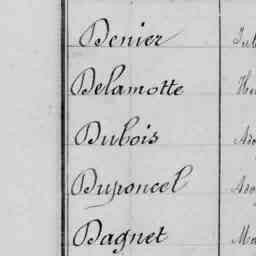 Denier
Delamotte
Dubois
Duponcel
Dagnet